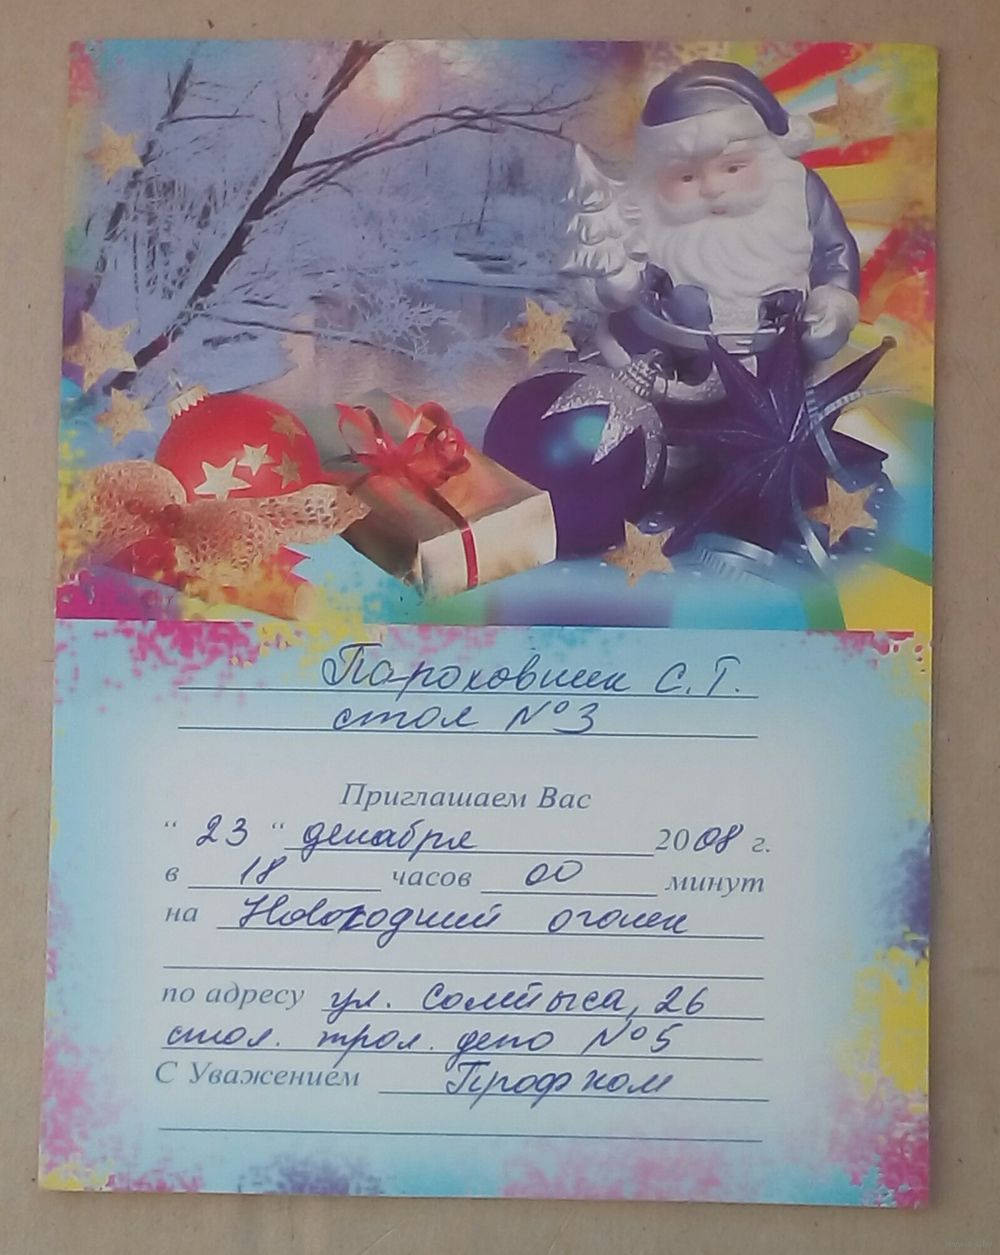 Пароховник С.Т.
стол №3
Приглашаем Вас
“ 23 “ декабря 2008 г.
в 18 часов 00 минут
на Новогодний огонек
по адресу ул. Солтыса, 26
стол. трол. депо №5
С Уважением Профком